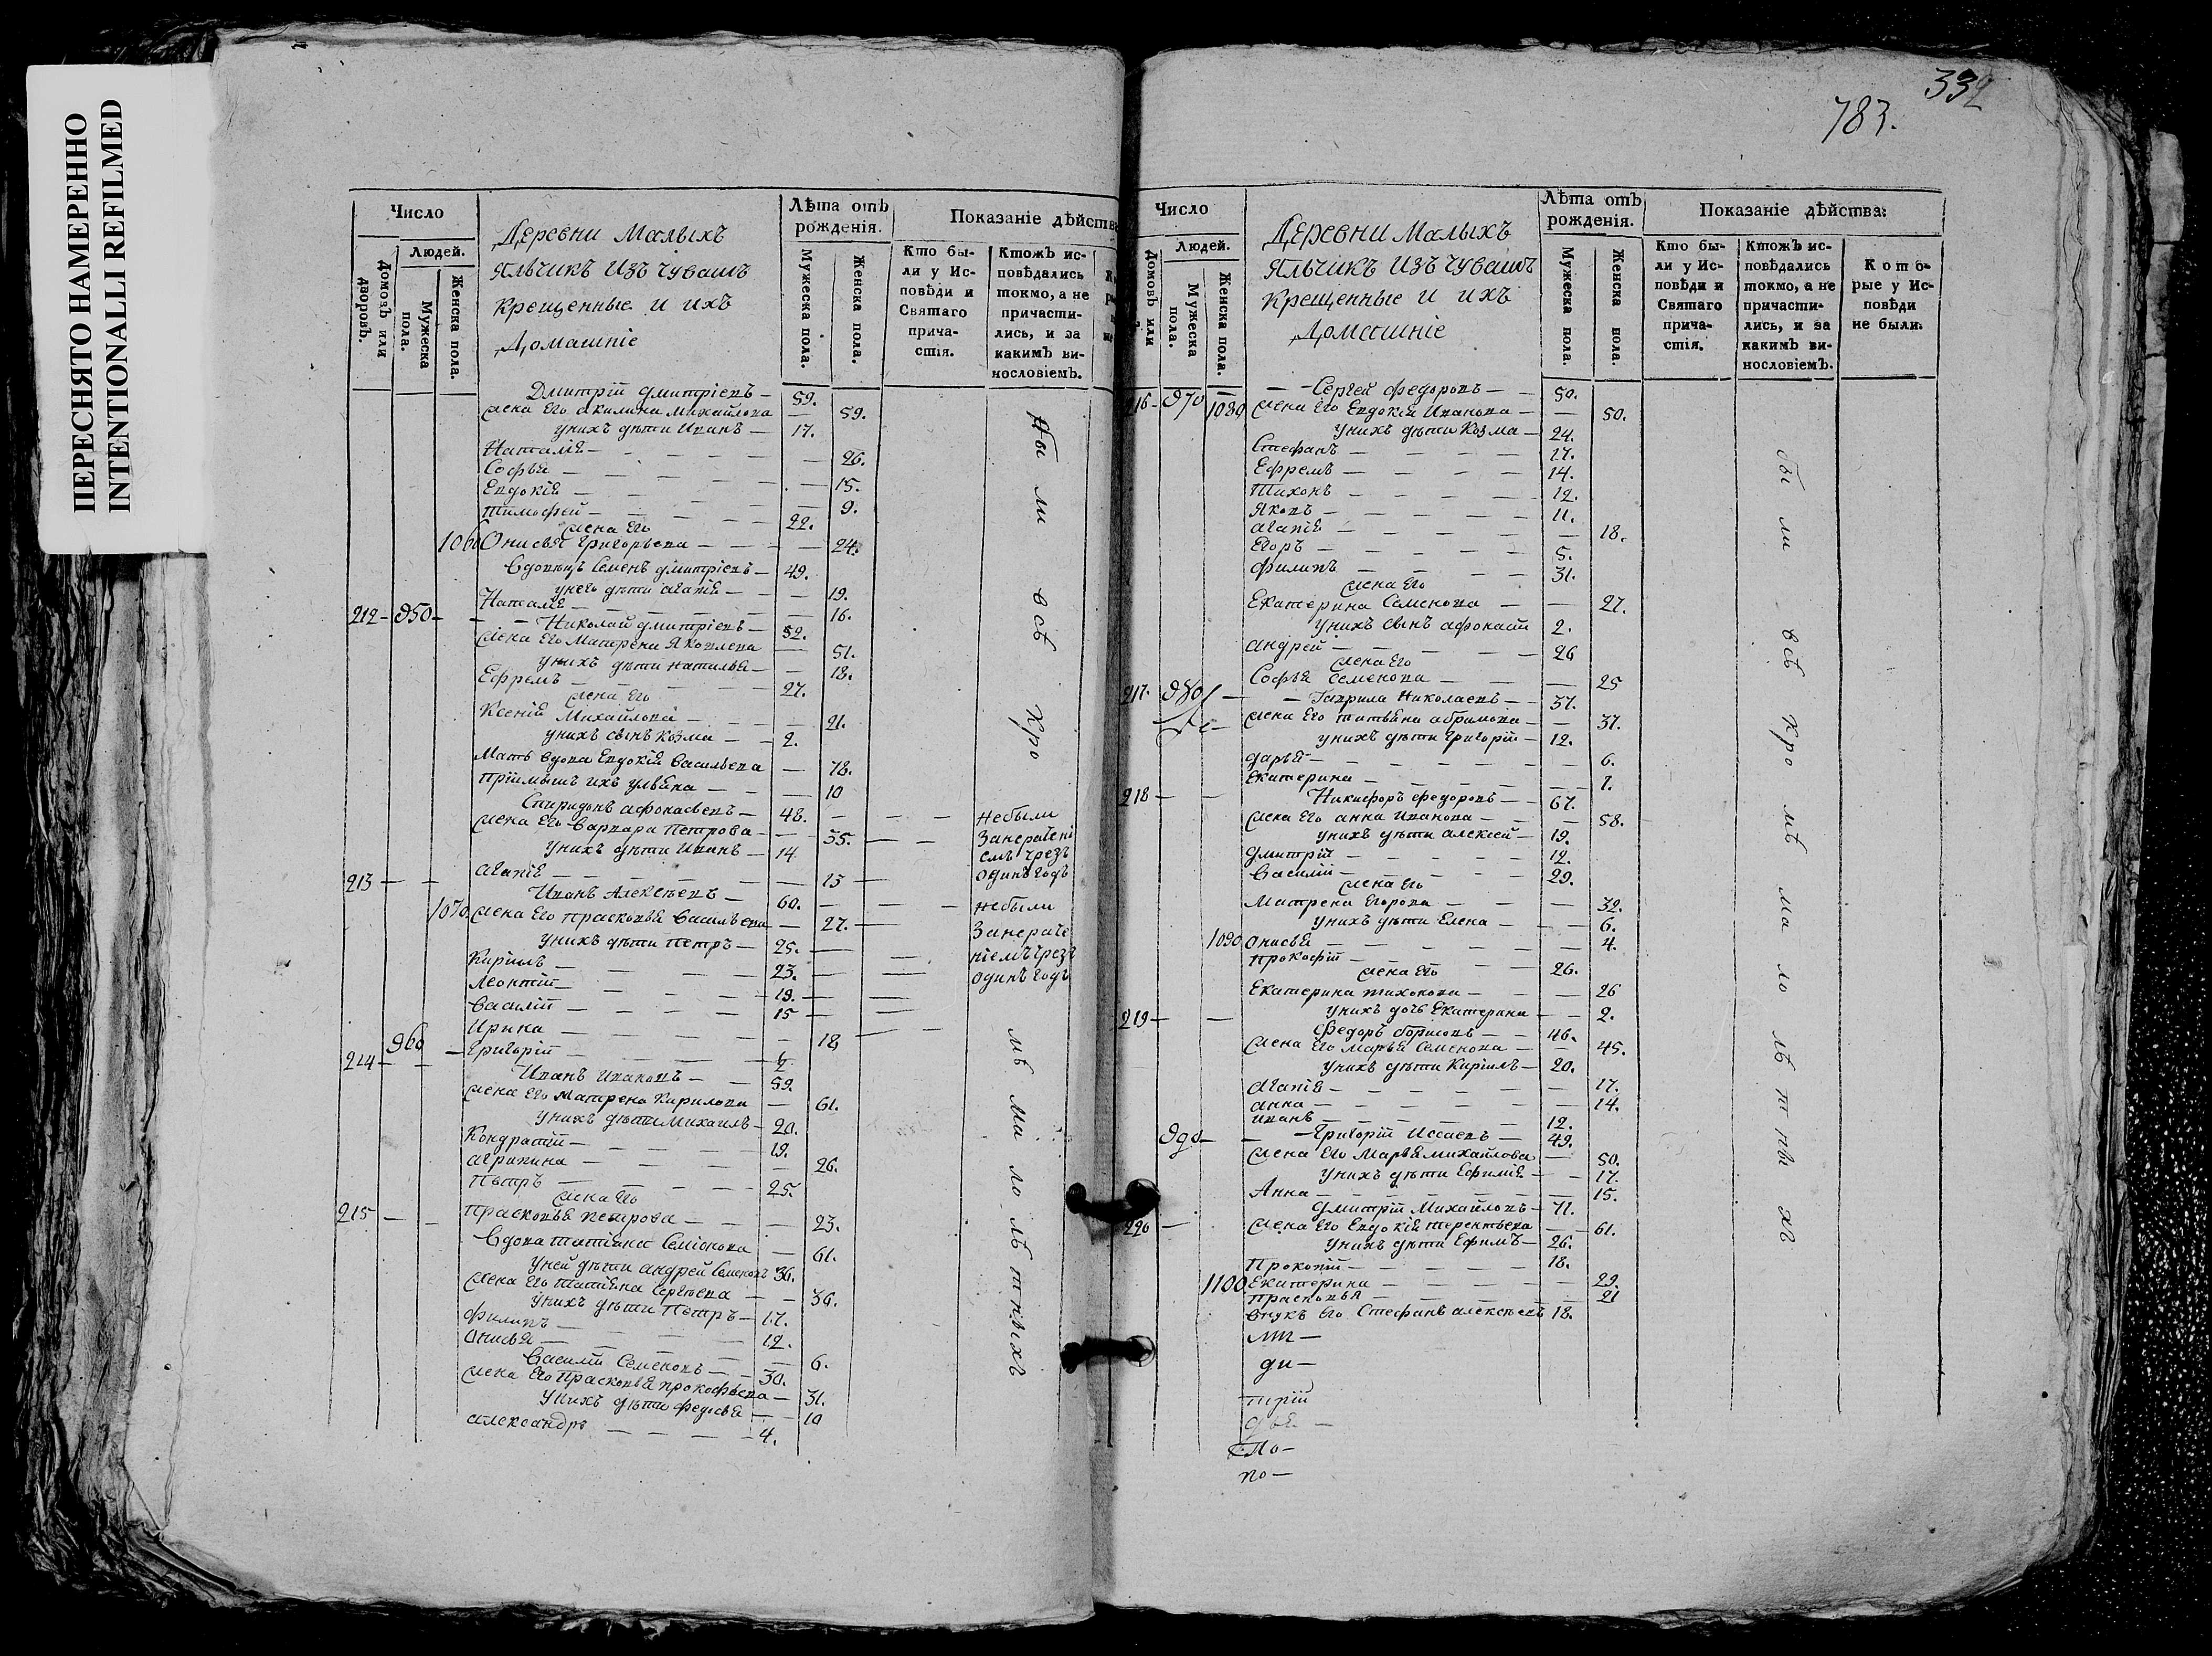 ПЕРЕСНЯТО НАМЕРЕННО
INTENTIONALLI REFILMED
332
783.
Число
Людей.
Домовъ или дворовъ.
Мужеска пола.
Женска пола.
Деревни Малыхъ
Яльчикъ изъ Чувашъ
крещенные и ихъ
Домашніе
Лѣта отъ рожденія.
Мужеска пола.
Женска пола.
Показаніе дѣйства
Кто были у Исповѣди и Святаго причастія.
Ктожъ исповѣдались токмо, а не причастились, и за какимъ винословіемъ.
Дмитрій Дмитріевъ — 59.
жена Его Акилина Михайлова — 59.
у нихъ дѣти Иванъ — 17.
Наталія — 26.
Софья — 15.
Евдокія — 9.
Тимофей — 22.
жена Его
1060 Онисья Григорьева — 24.
Вдовецъ Семенъ Дмитріевъ — 49.
у него дѣти Агапія — 19.
Наталія — 16.
212 — 950 — Николай Дмитріевъ — 52.
жена Его Матрена Яковлева — 51.
у нихъ дѣти Наталья — 18.
Ефремъ — 27.
жена Его
Ксенія Михайлова — 21.
у нихъ сынъ Козма — 2.
Мать вдова Евдокія Васильева — 78.
пріимышъ ихъ Ульяна — 10
Спиридонъ Афонасьевъ — 48. — небыли
жена Его Варвара Петрова — 35. — Занераченi
у нихъ дѣти Иванъ — 14 емъ чрезъ
Агапія — 13 — одинъ годъ
213 — Иванъ Алексѣевъ — 60. — небыли
1070 жена Его Прасковья Васильева — 27. — Занераче
у нихъ дѣти Петръ — 25. — ніемъ чрезъ
Кирилъ — 23. — одинъ годъ
Леонтій — 19. —
Василій — 15 —
Ирина — 18 —
960 — Григорій —
214 — Иванъ Ивановъ — 59.
жена Его Матрена Кирилова — 61.
у нихъ дѣти Михаилъ — 20.
Кондратій — 19.
Агрипина — 26.
Петръ — 25.
жена Его
215 — Прасковья Петрова — 23.
Вдова Татіана Семіонова — 61.
у ней дѣти Андрей Семеновъ 36.
жена Его Татіана Сергѣева — 36.
у нихъ дѣти Петръ — 17.
Филипъ — 12.
Онисья — 6.
Василій Семеновъ — 30.
жена Его Прасковья Прокофьева — 31.
у нихъ дѣти Федосья — 10
Александръ — 4.
были всѣ кромѣ малолѣтныхъ
Число
Людей.
Домовъ или
Мужеска пола.
Женска пола.
Деревни Малыхъ
Яльчикъ изъ Чувашъ
крещенные и ихъ
Домашніе
Лѣта отъ рожденія.
Мужеска пола.
Женска пола.
Показаніе дѣйства:
Кто были у Исповѣди и Святаго причастія.
Ктожъ исповѣдались токмо, а не причастились, и за какимъ винословіемъ.
Которые у Исповѣди не были.
216 — 970 — Сергей Федоровъ — 50.
1080 жена Его Евдокія Иванова — 50.
у нихъ дѣти Козма — 24.
Стефанъ — 17.
Ефремъ — 14.
Тихонъ — 12.
Яковъ — 11.
Агапія — 18.
Егоръ — 5.
Филипъ — 31.
жена Его
Екатерина Семенова — 27.
у нихъ сынъ Афонасій 2.
Андрей — 26
жена Его
Софья Семенова — 25
217. 980 — Гаврила Николаевъ — 37.
жена Его Татьяна Абрамова — 37.
у нихъ дѣти Григорій — 12.
Дарья — 6.
Екатерина — 1.
218 — Никифоръ Федоровъ — 67.
жена Его Анна Иванова — 58.
у нихъ дѣти Алексей — 19.
Дмитрій — 12.
Василій — 29.
жена Его
Матрена Егорова — 32.
у нихъ дѣти Елена — 6.
1090 Онисья — 4.
Прокофій — 26.
жена Его
Екатерина Тихонова — 26
у нихъ дочь Екатерина — 2.
219 — Федоръ Борисовъ — 46.
жена Его Марья Семенова — 45.
у нихъ дѣти Кирилъ — 20.
Агапія — 17.
Анна — 14.
Иванъ — 12.
990 — Григорій Иссаевъ — 49.
жена Его Марья Михайлова 50.
у нихъ дѣти Ефимія — 17.
Анна — 15.
Дмитрій Михайловъ — 71.
220 — жена Его Евдокія Терентьева — 61.
у нихъ дѣти Ефимъ — 26.
Прокопій — 18.
1100 Екатерина — 29.
Прасковья — 21
внукъ Его Стефанъ Алексѣевъ 18.
ми —
ди —
трій
дья —
Мо —
по —
были всѣ кромѣ малолѣтныхъ